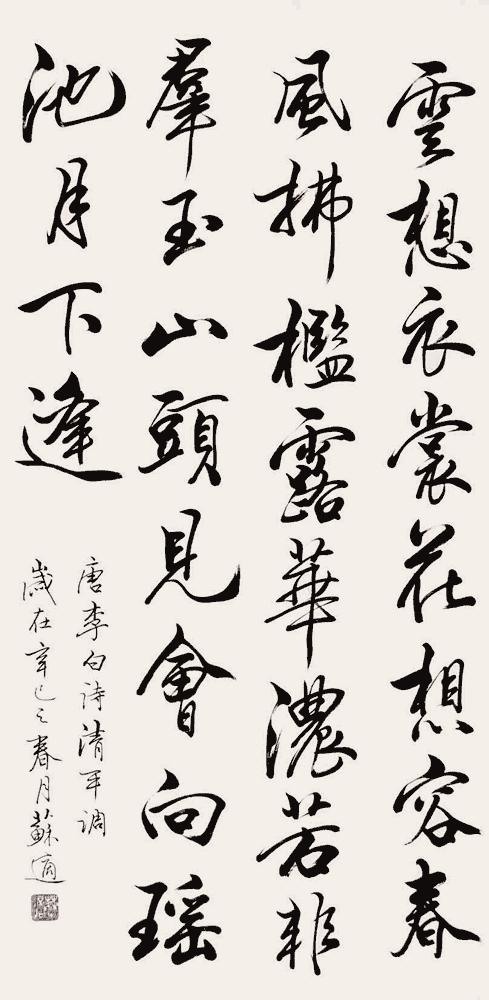 雲想衣裳花想容春
風拂檻露華濃若非
羣玉山頭見會向瑶
池月下逢
唐李白诗清平调
歲在辛巳之春月蘇適